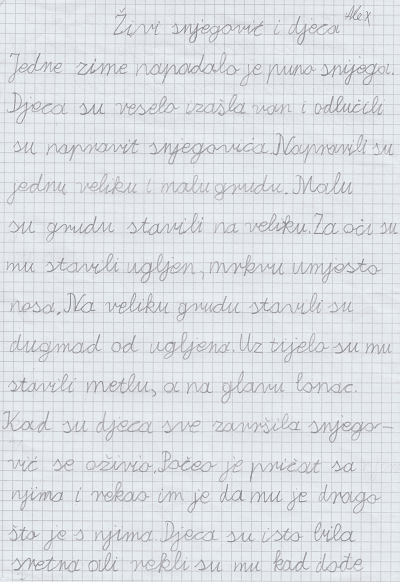 Alex
Živi snjegović i djeca
Jedne zime napadalo je puno snijega.
Djeca su veselo izašla van i odlučili
su napravit snjegovića. Napravili su
jednu veliku i malu grudu. Malu
su grudu stavili na veliku. Za oči su
mu stavili ugljen, mrkvu umjesto
nosa. Na veliku grudu stavili su
dugmad od ugljena. Uz tijelo su mu
stavili metlu, a na glavu lonac.
Kad su djeca sve završila snjego-
vić se oživio. Počeo je pričat sa
njima i rekao im je da mu je drago
što je s njima. Djeca su isto bila
sretna ali rekli su mu kad dođe